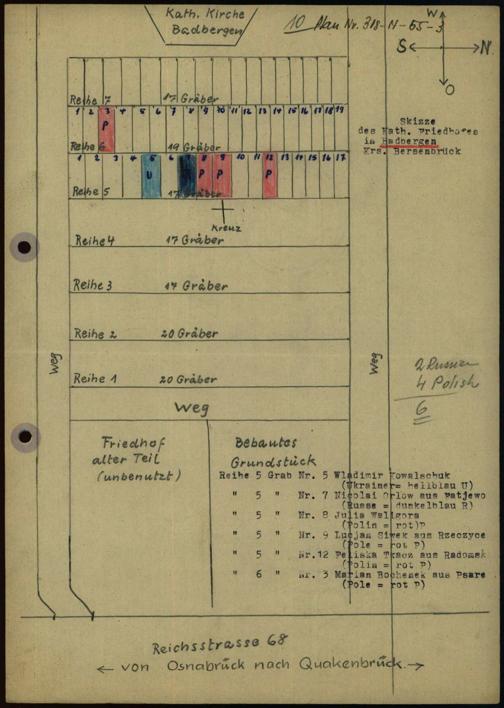 Kath. Kirche
Badbergen
10 Plan Nr. 318-N-65-3
W
S N.
O
Skizze
des Kath. Friedhofes
in Badbergen
Krs. Bersenbrück
Reihe 7 17 Gräber
1 2 3 4 5 6 7 8 9 10 11 12 13 14 15 16 17 18 19
P
Reihe 6 19 Gräber
1 2 3 4 5 6 7 8 9 10 11 12 13 14 15 16 17
U R P P P
Reihe 5 17 Gräber
Kreuz
Reihe 4 17 Gräber
Reihe 3 17 Gräber
Reihe 2 20 Gräber
Reihe 1 20 Gräber
Weg
Weg
Weg
2 Russian
4 Polish
6
Friedhof
alter Teil
(unbenutzt)
Bebautes
Grundstück
Reihe 5 Grab Nr. 5 Wladimir Kowalschuk
(Ukrainer= hellblau U)
" 5 " Nr. 7 Nicolai Orlow aus Patjewo
(Russe = dunkelblau R)
" 5 " Nr. 8 Julia Waligora
(Polin = rot)P
" 5 " Nr. 9 Lucjan Siwek aus Rzeczyce
(Pole = rot P)
" 5 " Nr.12 Feliska Tkacz aus Radomsk
(Polin = rot P)
" 6 " Nr. 3 Marian Bochenek aus Psare
(Pole = rot P)
Reichsstrasse 68
von Osnabrück nach Quakenbrück